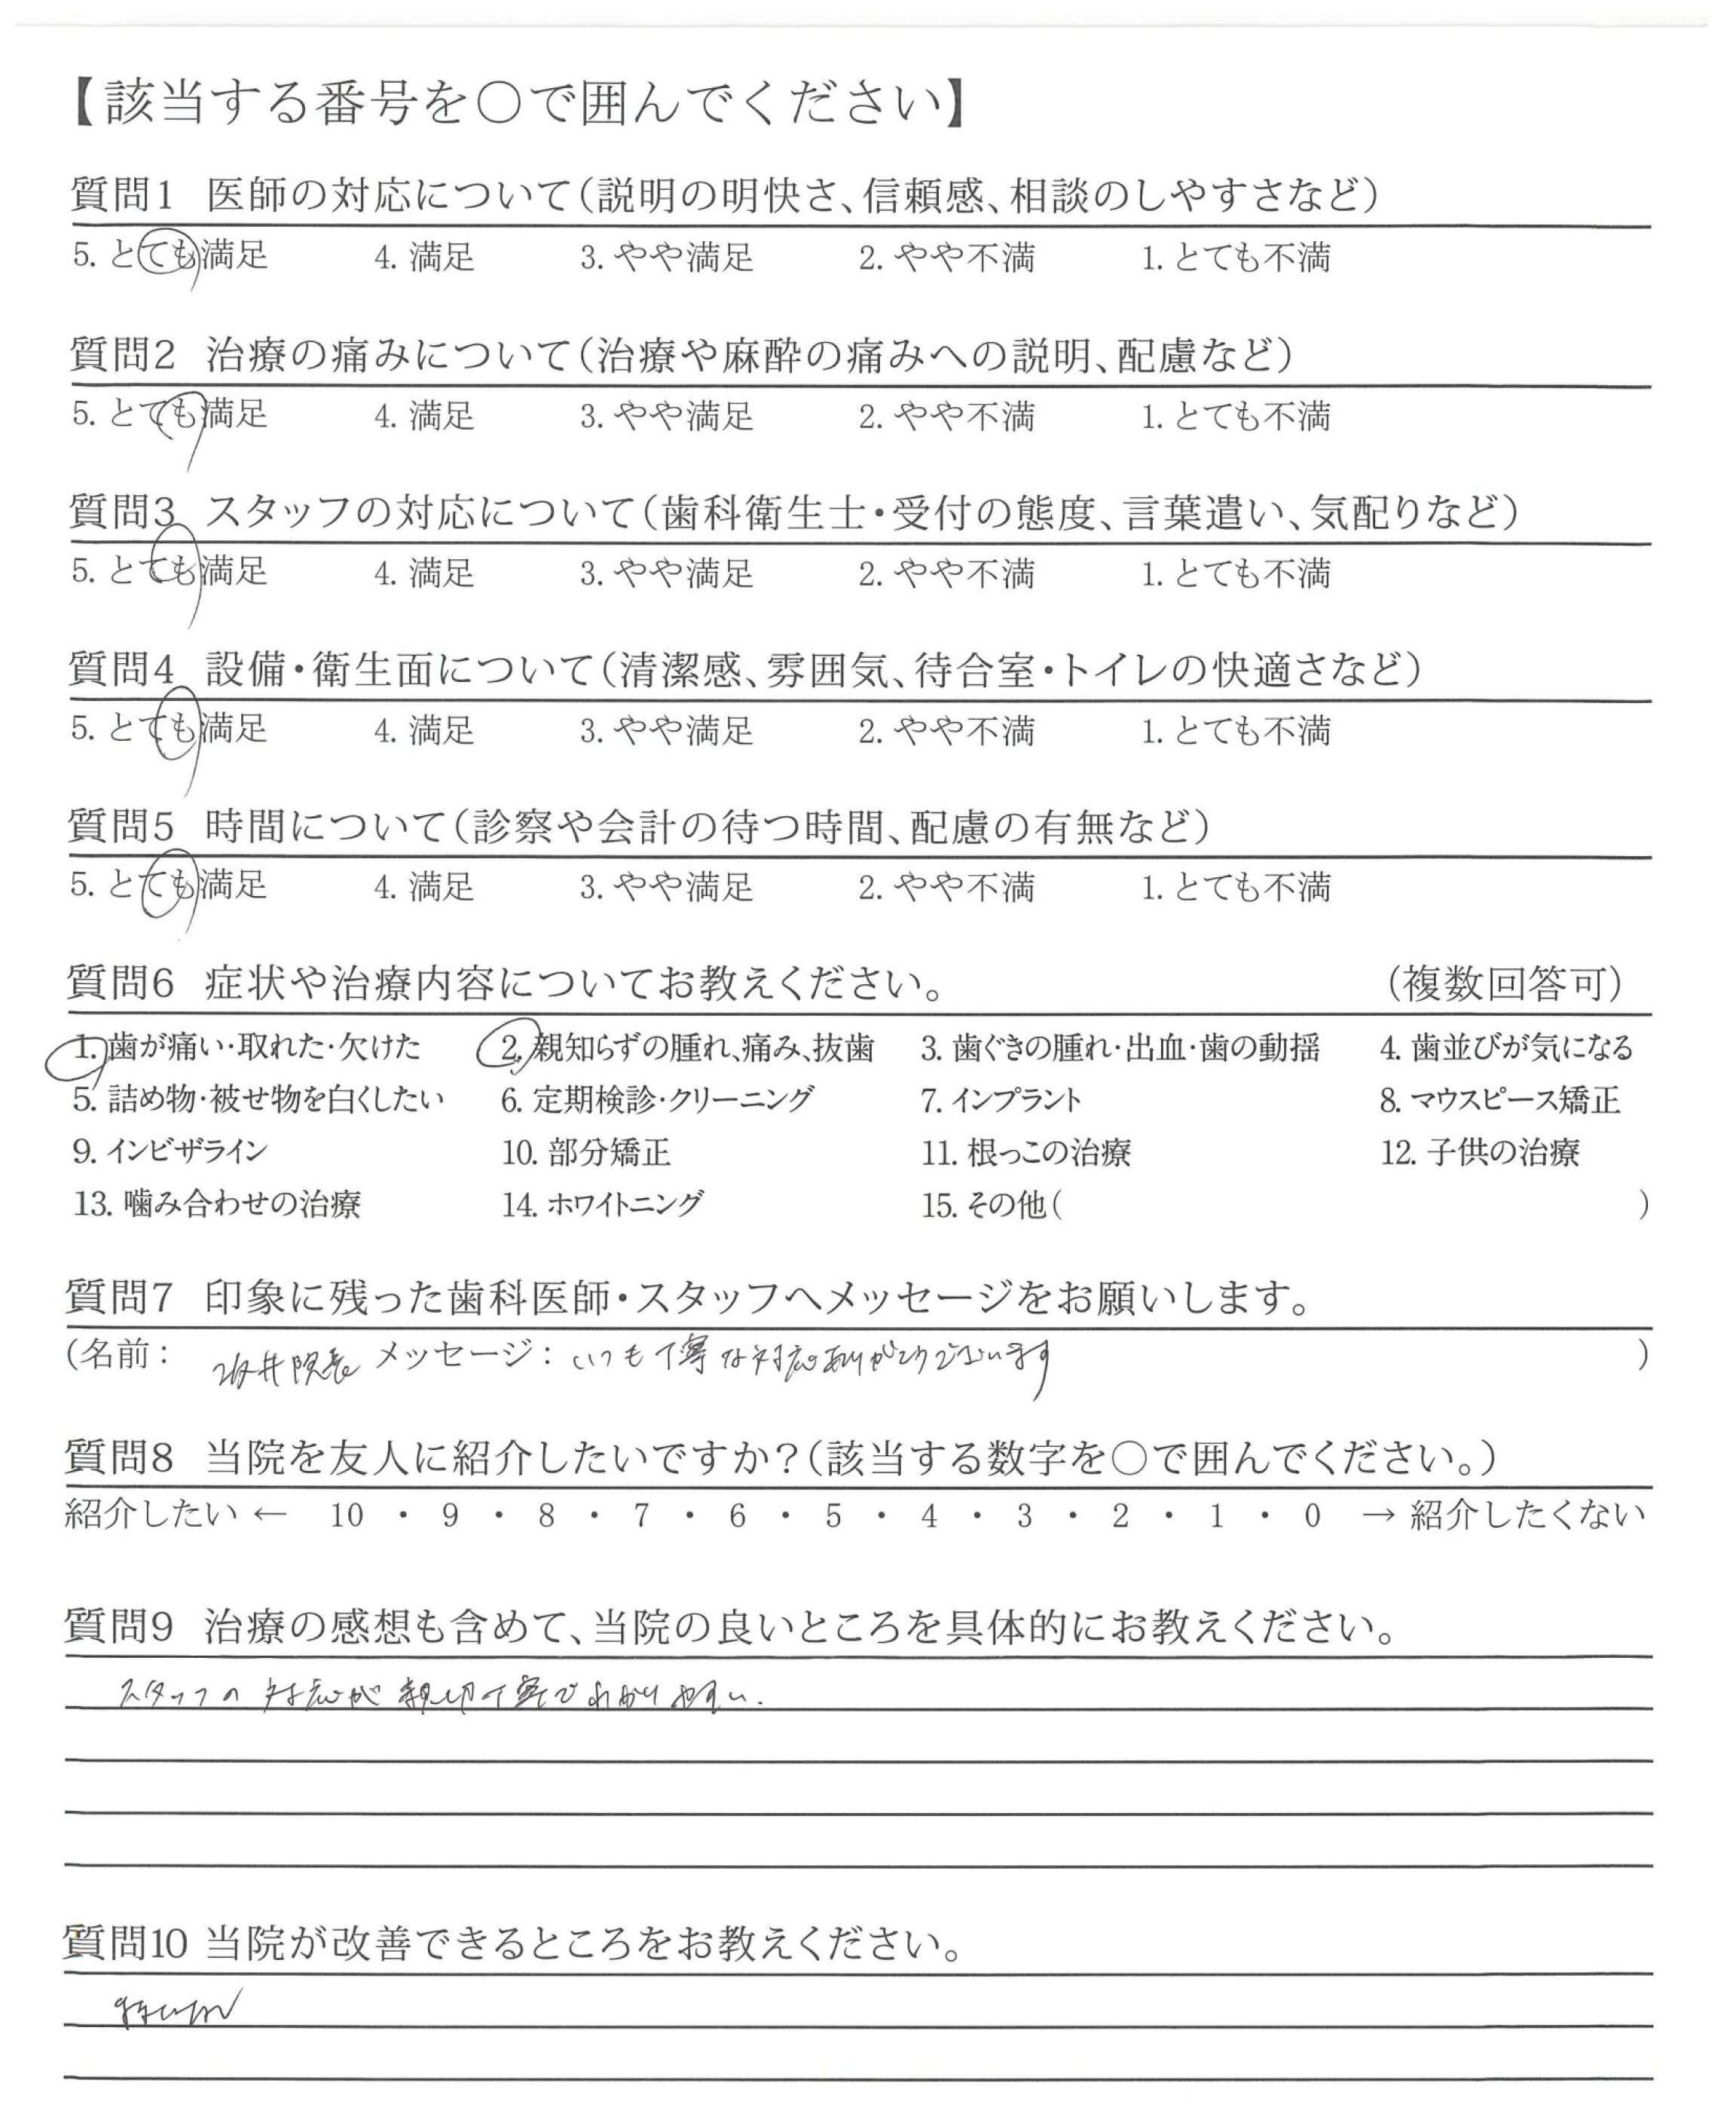 【該当する番号を〇で囲んでください】
質問1 医師の対応について(説明の明快さ、信頼感、相談のしやすさなど)
5. とても満足 4. 満足 3. やや満足 2. やや不満 1. とても不満
質問2 治療の痛みについて(治療や麻酔の痛みへの説明、配慮など)
5. とても満足 4. 満足 3. やや満足 2. やや不満 1. とても不満
質問3 スタッフの対応について(歯科衛生士・受付の態度、言葉遣い、気配りなど)
5. とても満足 4. 満足 3. やや満足 2. やや不満 1. とても不満
質問4 設備・衛生面について(清潔感、雰囲気、待合室・トイレの快適さなど)
5. とても満足 4. 満足 3. やや満足 2. やや不満 1. とても不満
質問5 時間について(診察や会計の待つ時間、配慮の有無など)
5. とても満足 4. 満足 3. やや満足 2. やや不満 1. とても不満
質問6 症状や治療内容についてお教えください。 (複数回答可)
1. 歯が痛い・取れた・欠けた 2. 親知らずの腫れ、痛み、抜歯 3. 歯ぐきの腫れ・出血・歯の動揺 4. 歯並びが気になる
5. 詰め物・被せ物を白くしたい 6. 定期検診・クリーニング 7. インプラント 8. マウスピース矯正
9. インビザライン 10. 部分矯正 11. 根っこの治療 12. 子供の治療
13. 噛み合わせの治療 14. ホワイトニング 15. その他( )
質問7 印象に残った歯科医師・スタッフへメッセージをお願いします。
(名前: 坂井院長 メッセージ: いつも丁寧な対応ありがとうございます )
質問8 当院を友人に紹介したいですか?(該当する数字を〇で囲んでください。)
紹介したい ← 10 ・ 9 ・ 8 ・ 7 ・ 6 ・ 5 ・ 4 ・ 3 ・ 2 ・ 1 ・ 0 → 紹介したくない
質問9 治療の感想も含めて、当院の良いところを具体的にお教えください。
スタッフの対応が親切丁寧でわかりやすい.
質問10 当院が改善できるところをお教えください。